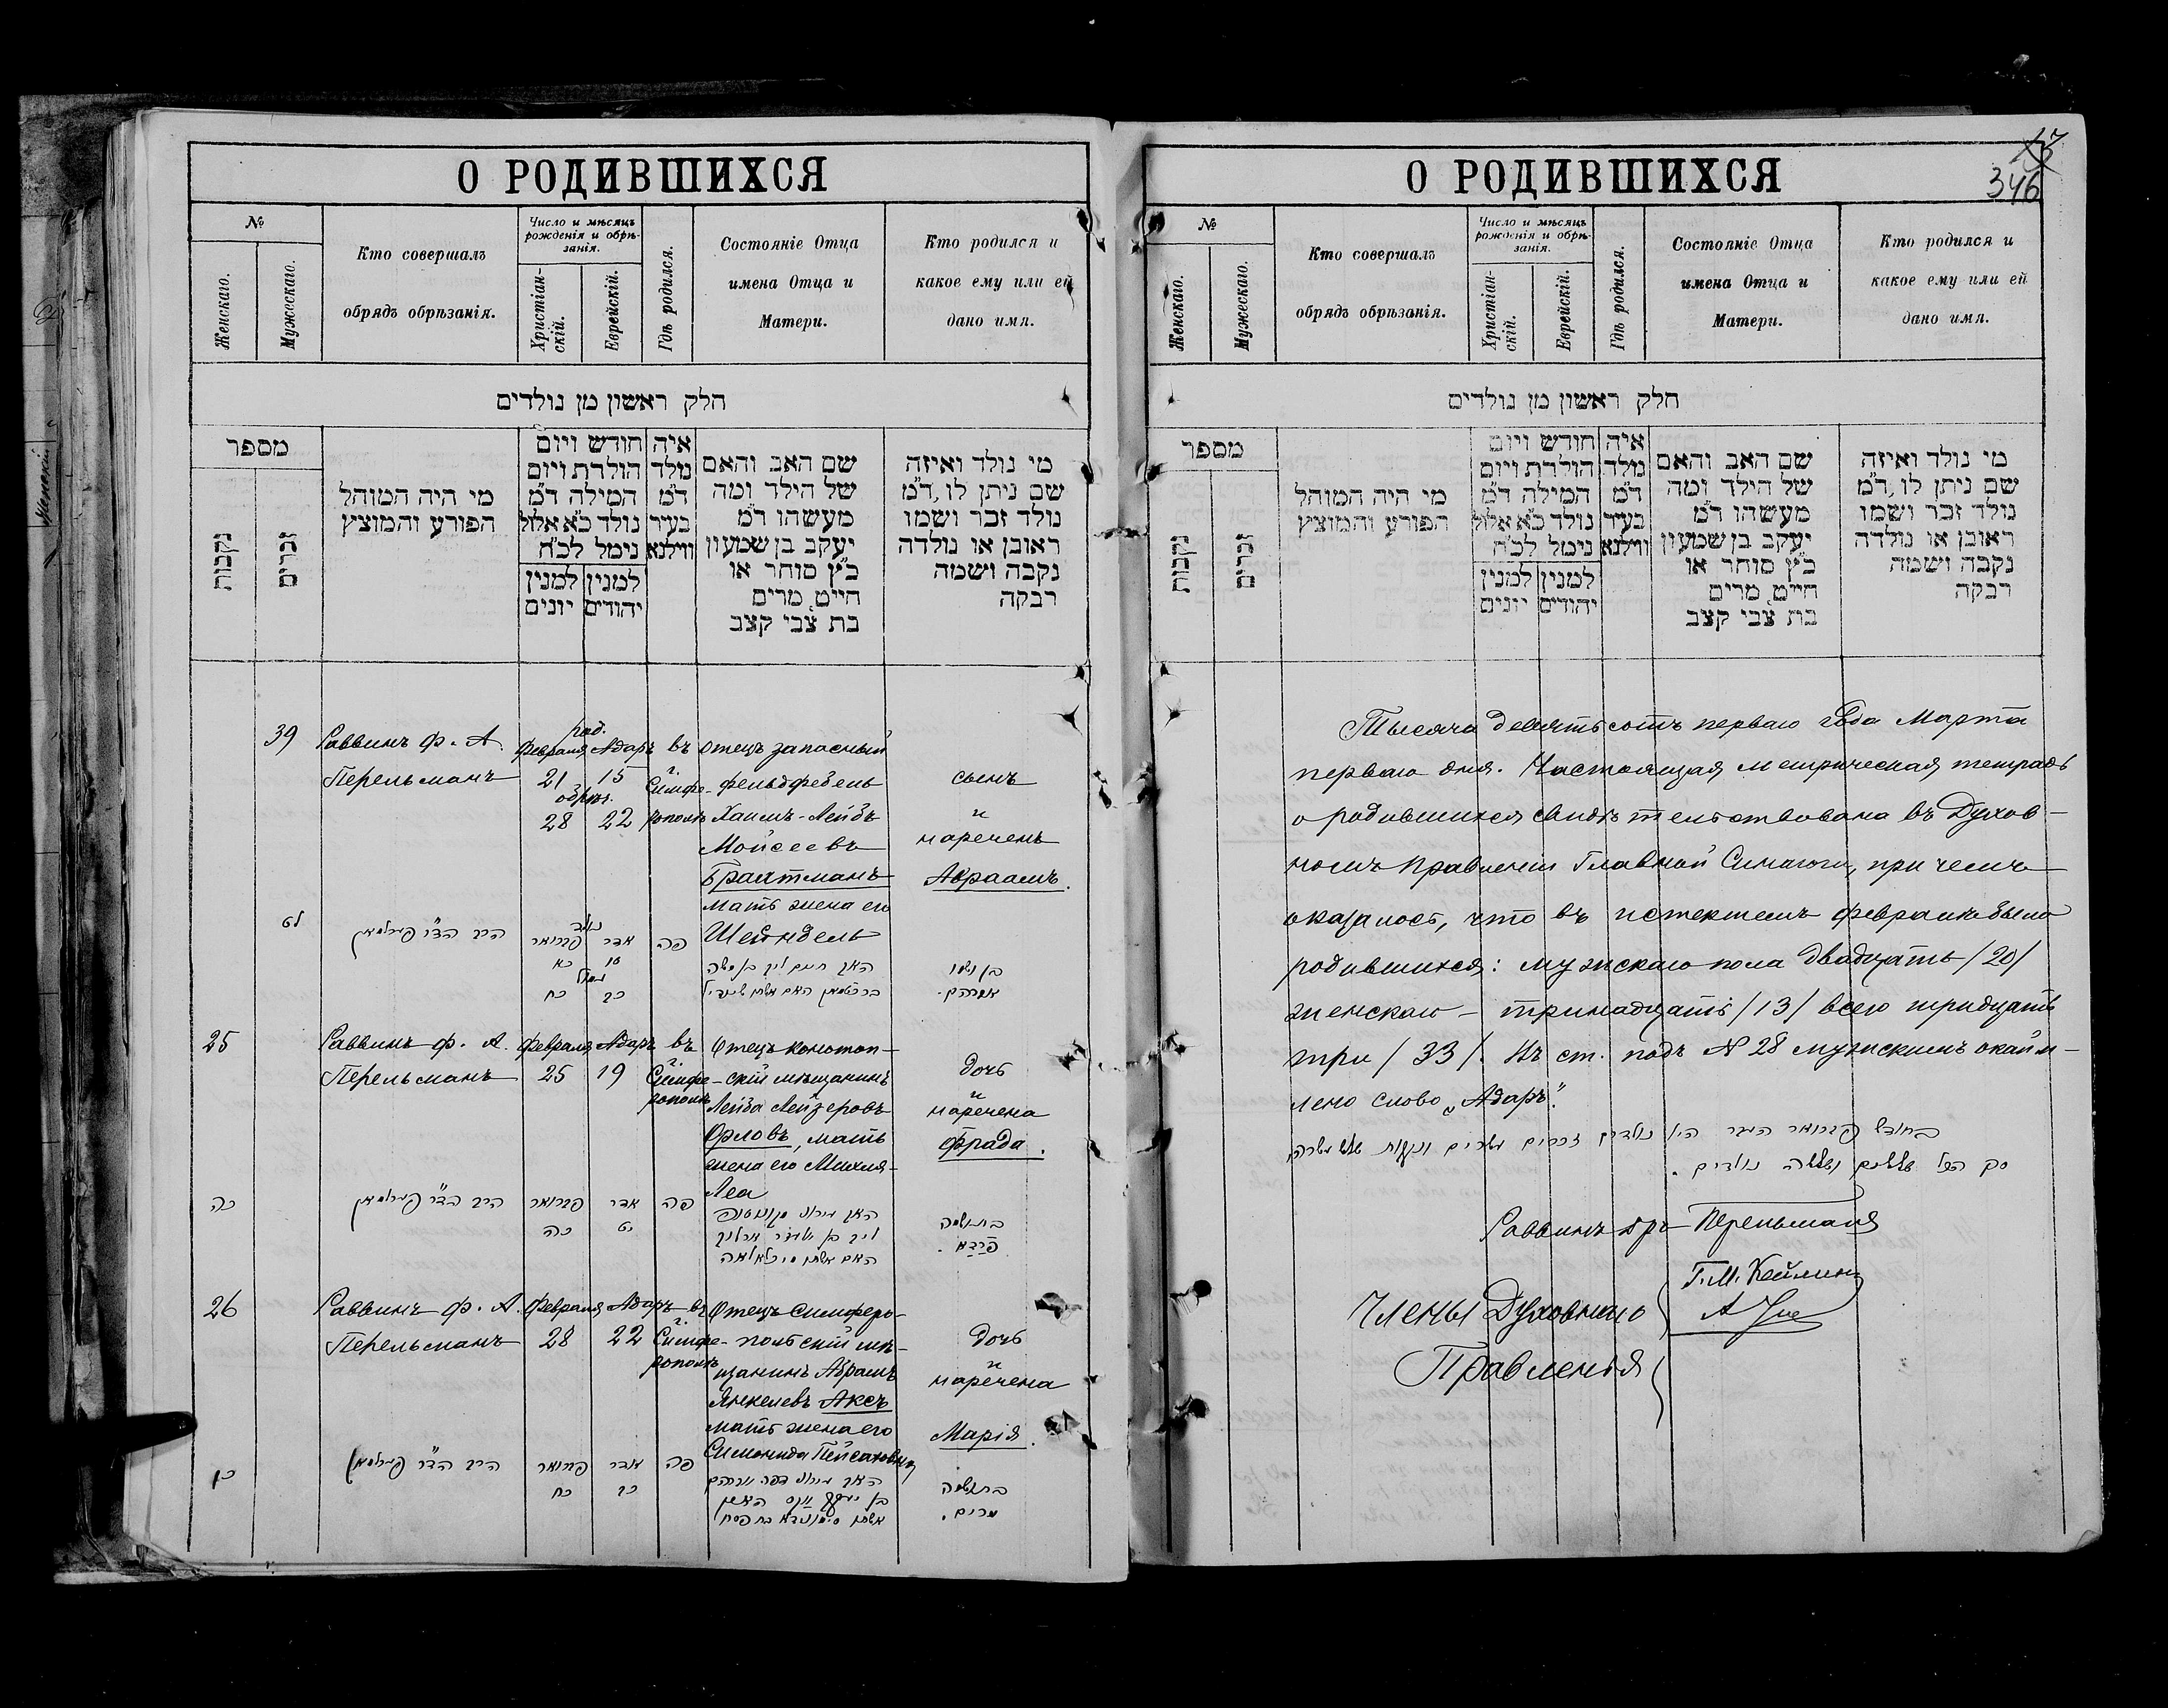 О РОДИВШИХСЯ
№
Женскаго.
Мужескаго.
Кто совершалъ
обрядъ обрѣзанія.
Число и мѣсяцъ
рожденія и обрѣ-
занія.
Христіан-
скій.
Еврейскій.
Гдѣ родился.
Состояніе Отца
имена Отца и
Матери.
Кто родился и
какое ему или ей
дано имя.
חלק ראשון מן נולדים
מספר
נקבות
זכרים
מי היה המוהל
הפורע והמוצץ
חודש ויום
הולדת ויום
המילה ד״מ
נולד כ״א אלול
נימל לכ״ח
למנין יהודים
למנין יונים
איה
נולד
ד״מ
בעיר
ווילנא
שם האב והאם
של הילד ומה
מעשהו ד״מ
יעקב בן שמעון
כ״ץ סוחר או
חייט, מרים
בת צבי קצב
מי נולד ואיזה
שם ניתן לו, ד״מ
נולד זכר ושמו
ראובן או נולדה
נקבה ושמה
רבקה
39
Раввинъ Ф. А.
Перельманъ
род.
Февраля Адаръ
21 15
обрѣз.
28 22
въ
г.
Симфе-
рополѣ
Отецъ запасный
фельдфебель
Хаимъ-Лейбъ
Мойсеевъ
Брахтманъ
мать жена его
Шейндель
сынъ
и
нареченъ
Авраамъ.
לט
הרב הד״ר פערלמאן
נולד
פברואר אדר
כא טו
נימול
כח כב
פה
האב חיים ליב בן משה
בראכטמאן האם אשתו שיינדיל
בן ושמו
אברהם.
25
Раввинъ Ф. А.
Перельманъ
Февраля Адаръ
25 19
въ
г.
Симфе-
рополѣ
Отецъ конотоп-
скій мѣщанинъ
Лейба Лейзеровъ
Орловъ, мать
жена его Михля-
Леа
дочь
и
наречена
Фрада.
כה
הרב הד״ר פערלמאן
פברואר אדר
כה יט
פה
האם אשתו מיכלא לאה
בת ושמה
פרדא.
26
Раввинъ Ф. А.
Перельманъ
Февраля Адаръ
28 22
въ
г.
Симфе-
рополѣ
Отецъ симферо-
польскій мѣ-
щанинъ Абрамъ
Янкелевъ Аксъ
мать жена его
Симонида Пейсаховна
дочь
и
наречена
Марія.
כו
הרב הד״ר פערלמאן
פברואר אדר
כח כב
פה
בת ושמה
מרים.
О РОДИВШИХСЯ
346
№
Женскаго.
Мужескаго.
Кто совершалъ
обрядъ обрѣзанія.
Число и мѣсяцъ
рожденія и обрѣ-
занія.
Христіан-
скій.
Еврейскій.
Гдѣ родился.
Состояніе Отца
имена Отца и
Матери.
Кто родился и
какое ему или ей
дано имя.
חלק ראשון מן נולדים
מספר
נקבות
זכרים
מי היה המוהל
הפורע והמוצץ
חודש ויום
הולדת ויום
המילה ד״מ
נולד כ״א אלול
נימל לכ״ח
למנין יהודים
למנין יונים
איה
נולד
ד״מ
בעיר
ווילנא
שם האב והאם
של הילד ומה
מעשהו ד״מ
יעקב בן שמעון
כ״ץ סוחר או
חייט, מרים
בת צבי קצב
מי נולד ואיזה
שם ניתן לו, ד״מ
נולד זכר ושמו
ראובן או נולדה
נקבה ושמה
רבקה
Тысяча девятьсотъ перваго года Марта
перваго дня. Настоящая метрическая тетрадь
о родившихся свидѣтельствована въ Духов-
номъ Правленіи Главной Синагоги, при чемъ
оказалось, что въ истекшемъ февралѣ было
родившихся: мужскаго пола двадцать /20/
женскаго - тринадцать /13/ всего тридцать
три /33/. Въ ст. подъ № 28 мужскимъ окайм-
лено слово „Адаръ".
בחודש פברואר העבר היו נולדים זכרים עשרים ונקבות שלש עשרה
סך הכל שלשים ושלשה נולדים.
Раввинъ др Перельманъ
Члены Духовнаго
Правленія
Г. М. Кейлинъ